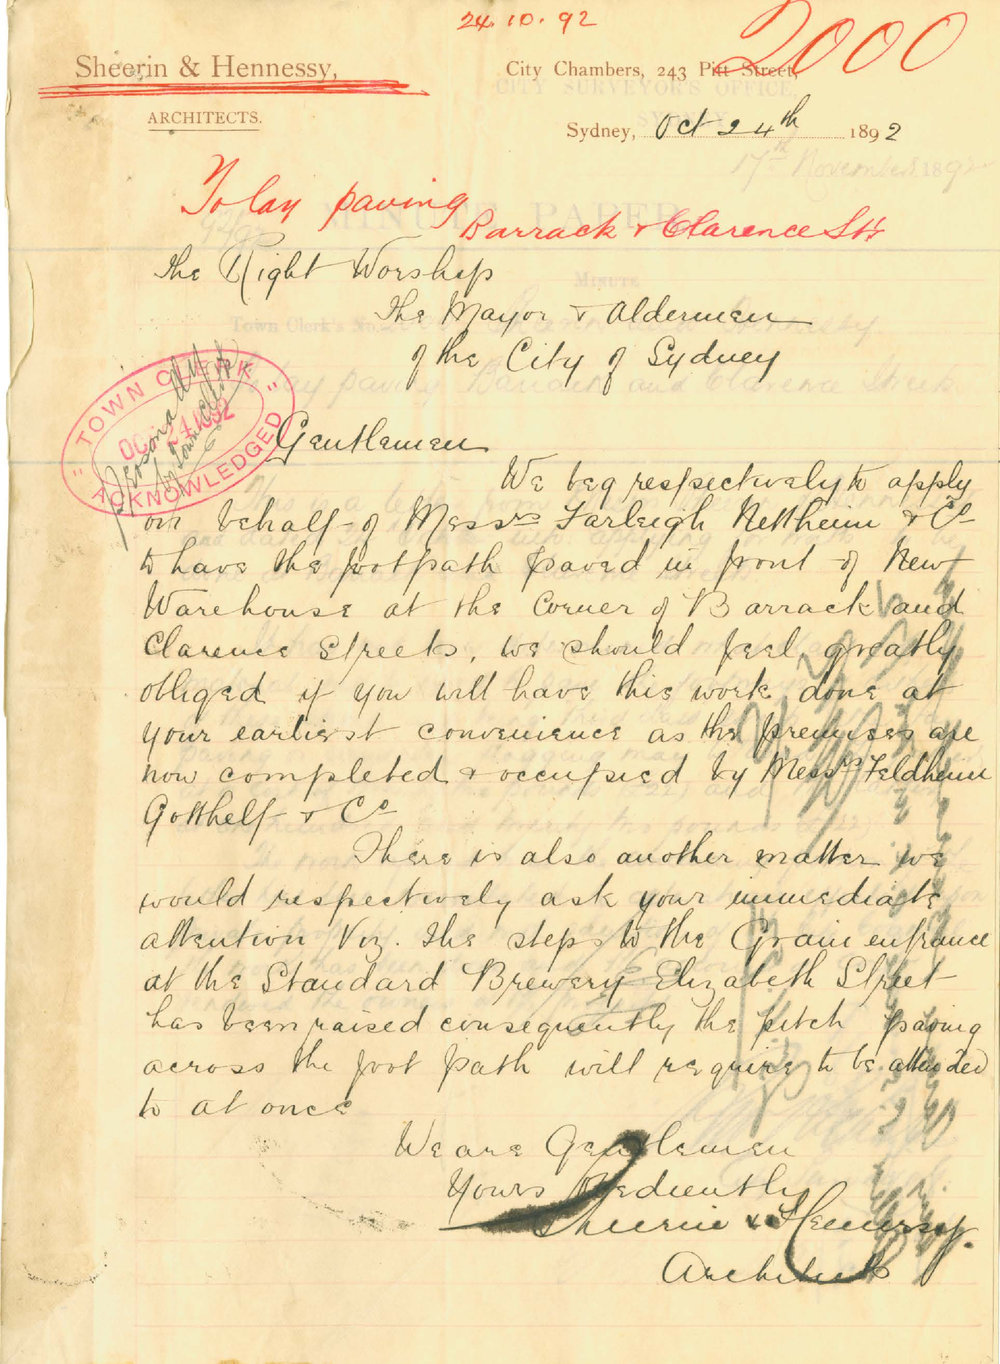 24.10.92
2000
Sheerin & Hennessy,
ARCHITECTS.
City Chambers, 243 Pitt Street,
Sydney, Oct 24th 1892
To lay paving
Barrack & Clarence Sts
The Right Worship
The Mayor & Aldermen
of the City of Sydney
TOWN CLERK
OC 24 1892
ACKNOWLEDGED
Gentlemen
We beg respectively to apply
on behalf of Messrs Farleigh Nettheim & Co
to have the footpath paved in front of New
Warehouse at the Corner of Barrack and
Clarence Streets, we should feel greatly
obliged if you will have this work done at
your earliest convenience as the premises are
now completed & occupied by Messrs Feldheim
Gotthelf & Co
There is also another matter we
would respectively ask your immediate
attention Viz. the steps to the Grain entrance
at the Standard Brewery Elizabeth Street
has been raised consequently the pitch paving
across the foot path will require to be attended
to at once
We are Gentlemen
Yours Obediently
Sheerin & Hennessy.
Architects